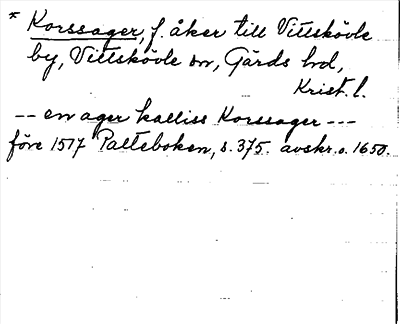 * Korssager, f. åker till Vittskövle
by, Vittskövle sn, Gärds hd,
Krist. l.
-- en ager kalliss Korssager ---
före 1517 Palteboken, s. 375. avskr. o. 1650.